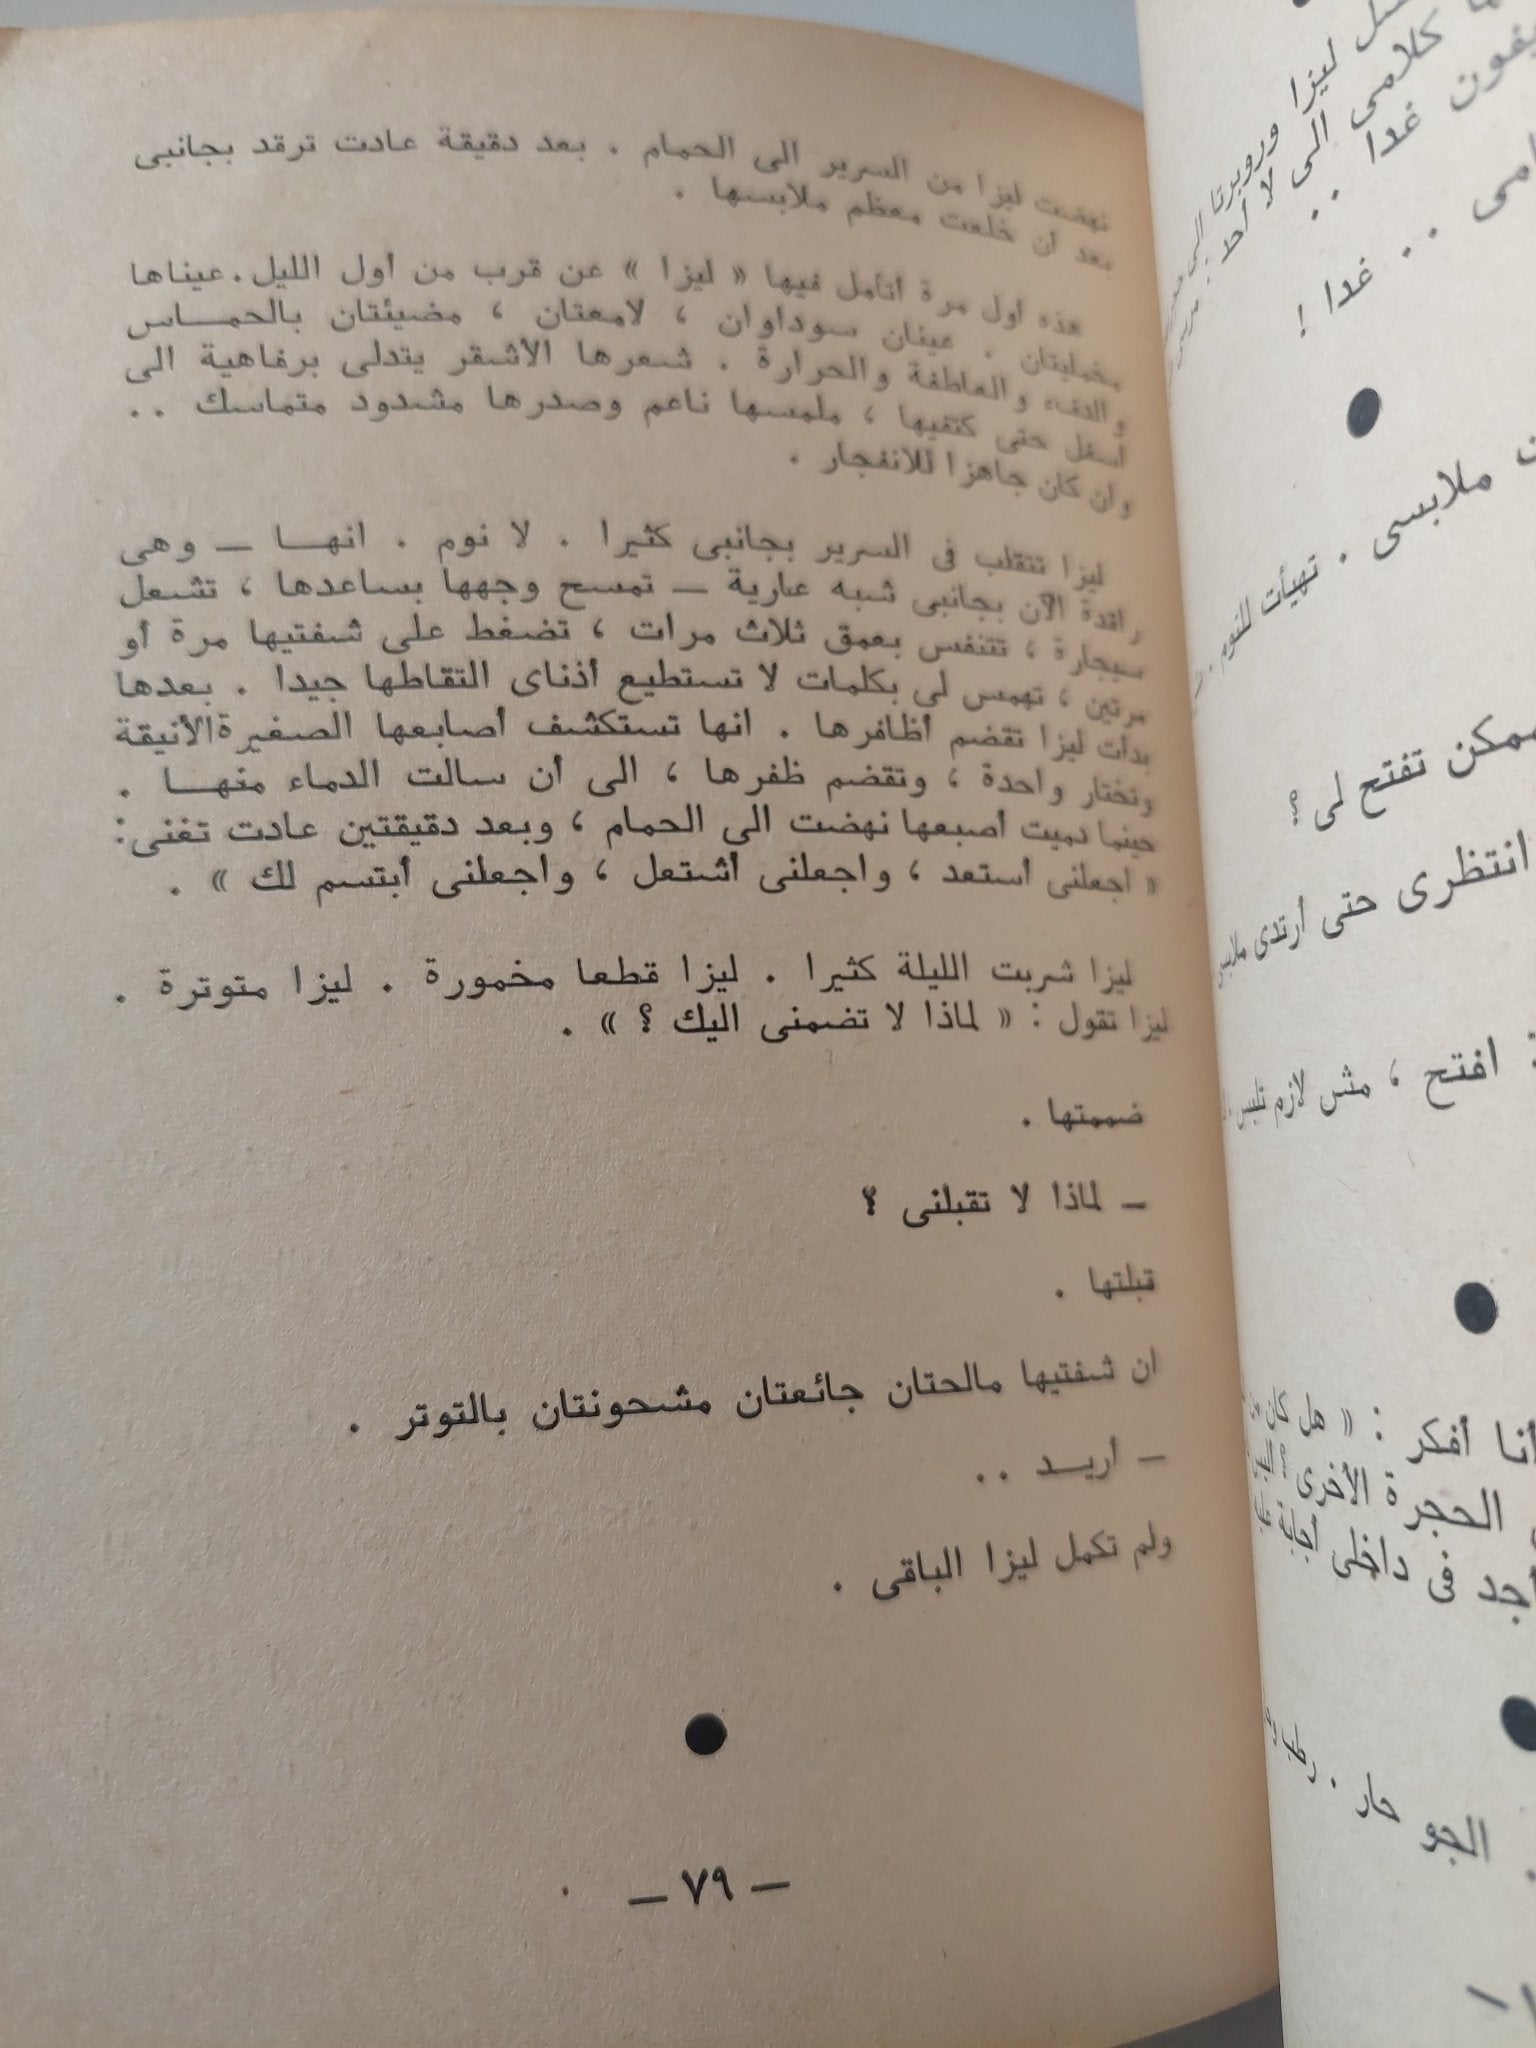 نهضت ليزا من السرير الى الحمام . بعد دقيقة عادت ترقد بجانبى
بعد أن خلعت معظم ملابسها .
هذه أول مرة أتأمل فيها « ليزا » عن قرب من أول الليل . عيناها
مخمليتان . عينان سوداوان ، لامعتان ، مضيئتان بالحمــاس
والدفء والعاطفة والحرارة . شعرها الأشقر يتدلى برفاهية الى
أسفل حتى كتفيها ، ملمسها ناعم وصدرها مشدود متماسك ..
وان كان جاهزا للانفجار .
ليزا تتقلب فى السرير بجانبى كثيرا . لا نوم . انهــا — وهى
راقدة الآن بجانبى شبه عارية — تمسح وجهها بساعدها ، تشعل
سيجارة ، تتنفس بعمق ثلاث مرات ، تضغط على شفتيها مرة أو
مرتين ، تهمس لى بكلمات لا تستطيع أذناى التقاطها جيدا . بعدها
بدأت ليزا تقضم أظافرها . انها تستكشف أصابعها الصغيرة الأنيقة
وتختار واحدة ، وتقضم ظفرها ، الى أن سالت الدماء منهــا .
حينما دميت أصبعها نهضت الى الحمام ، وبعد دقيقتين عادت تغنى :
« اجعلنى أستعد ، واجعلنى أشتعل ، واجعلنى أبتسم لك » .
ليزا شربت الليلة كثيرا . ليزا قطعا مخمورة . ليزا متوترة .
ليزا تقول : « لماذا لا تضمنى اليك ؟ » .
ضممتها .
— لماذا لا تقبلنى ؟
قبلتها .
ان شفتيها مالحتان جائعتان مشحونتان بالتوتر .
— أريــد ..
ولم تكمل ليزا الباقى .
— ٧٩ —
ليزا وروبرتا الى
كلامى الى لا أحد :
غدا ..
.. غدا !
ملابسى . تهيأت للنوم .
ممكن تفتح لى ؟
انتظرى حتى أرتدى
: افتح ، مش لازم تلبس
أنا أفكر : « هل كان
الحجرة الأخرى
أجد فى داخلى اجابة
. الجو حار .